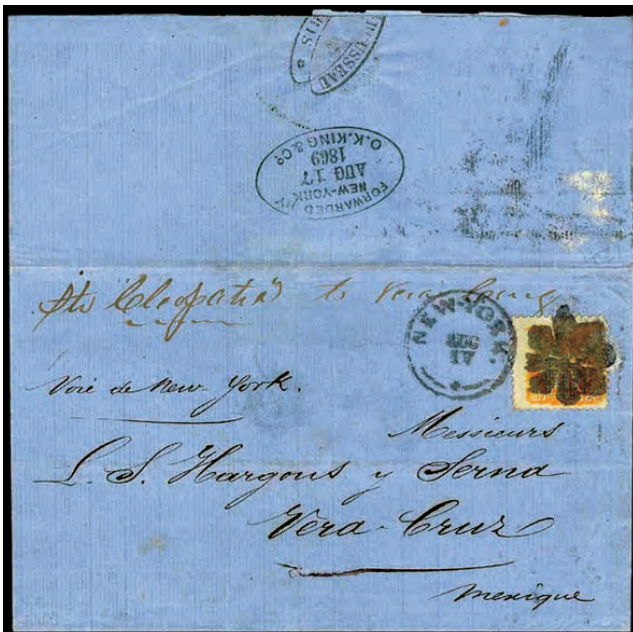 ROUSSEAU
FORWARDED BY
NEW-YORK
AUG 17
1869
O.K.KING & Co
Str "Cleopatra" to Vera Cruz
NEW-YORK
AUG
17
Voie de New York.
Messieurs
L. S. Hargous y Serna
Vera-Cruz
Mexique